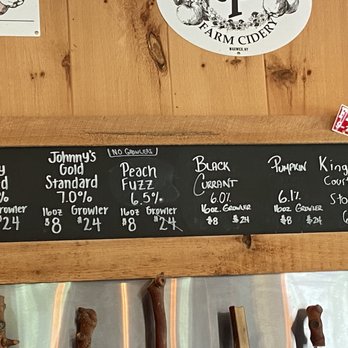 FARM CIDERY
WARWICK, NY
y
d
%
Growler
$24
Johnny's
Gold
Standard
7.0%
16oz Growler
$8 $24
NO GROWLERS
Peach
Fuzz
6.5%
16oz Growler
$8 $24
BLACK
CURRANT
6.0%
16oz. GROWLER
$8 $24
PUMPKIN
6.1%
16oz GROWLER
$8 $24
King
Cous
Sto
6